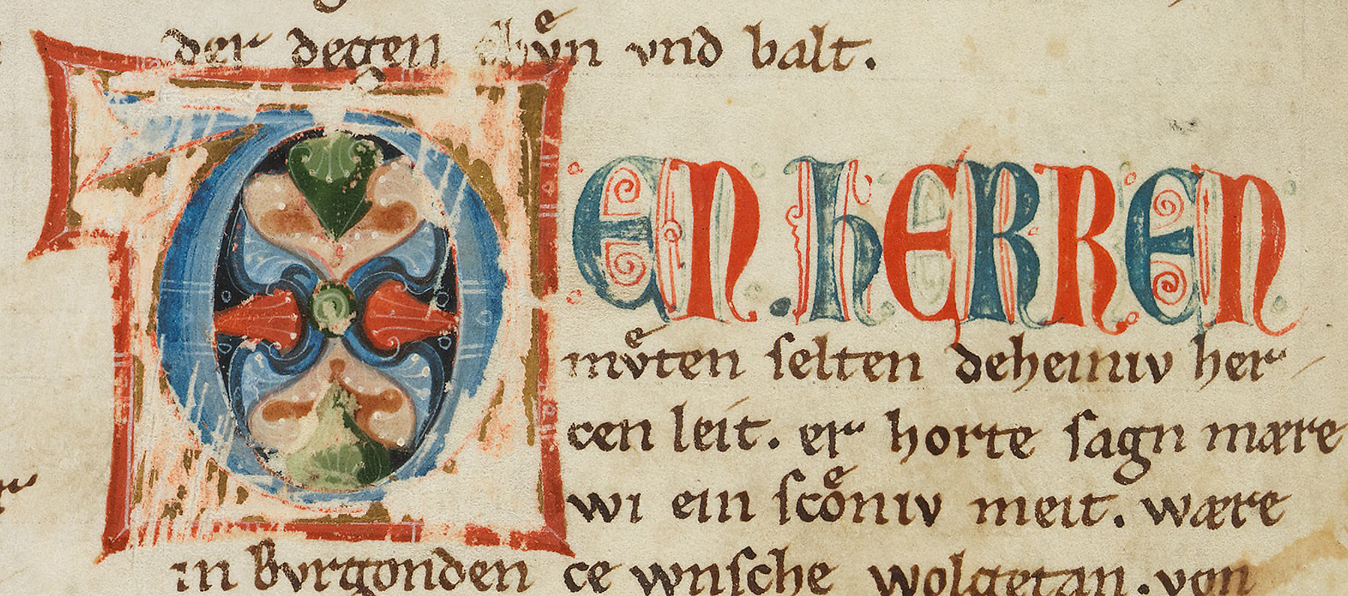 der degen chuͤn vnd balt.
DEN. hERREN
muͤten ſelten deheiniv her
cen leit. er horte ſagn mære
wi ein ſcoͤniv meit. wære
in Bvrgonden ce wnſche wolgetan. von